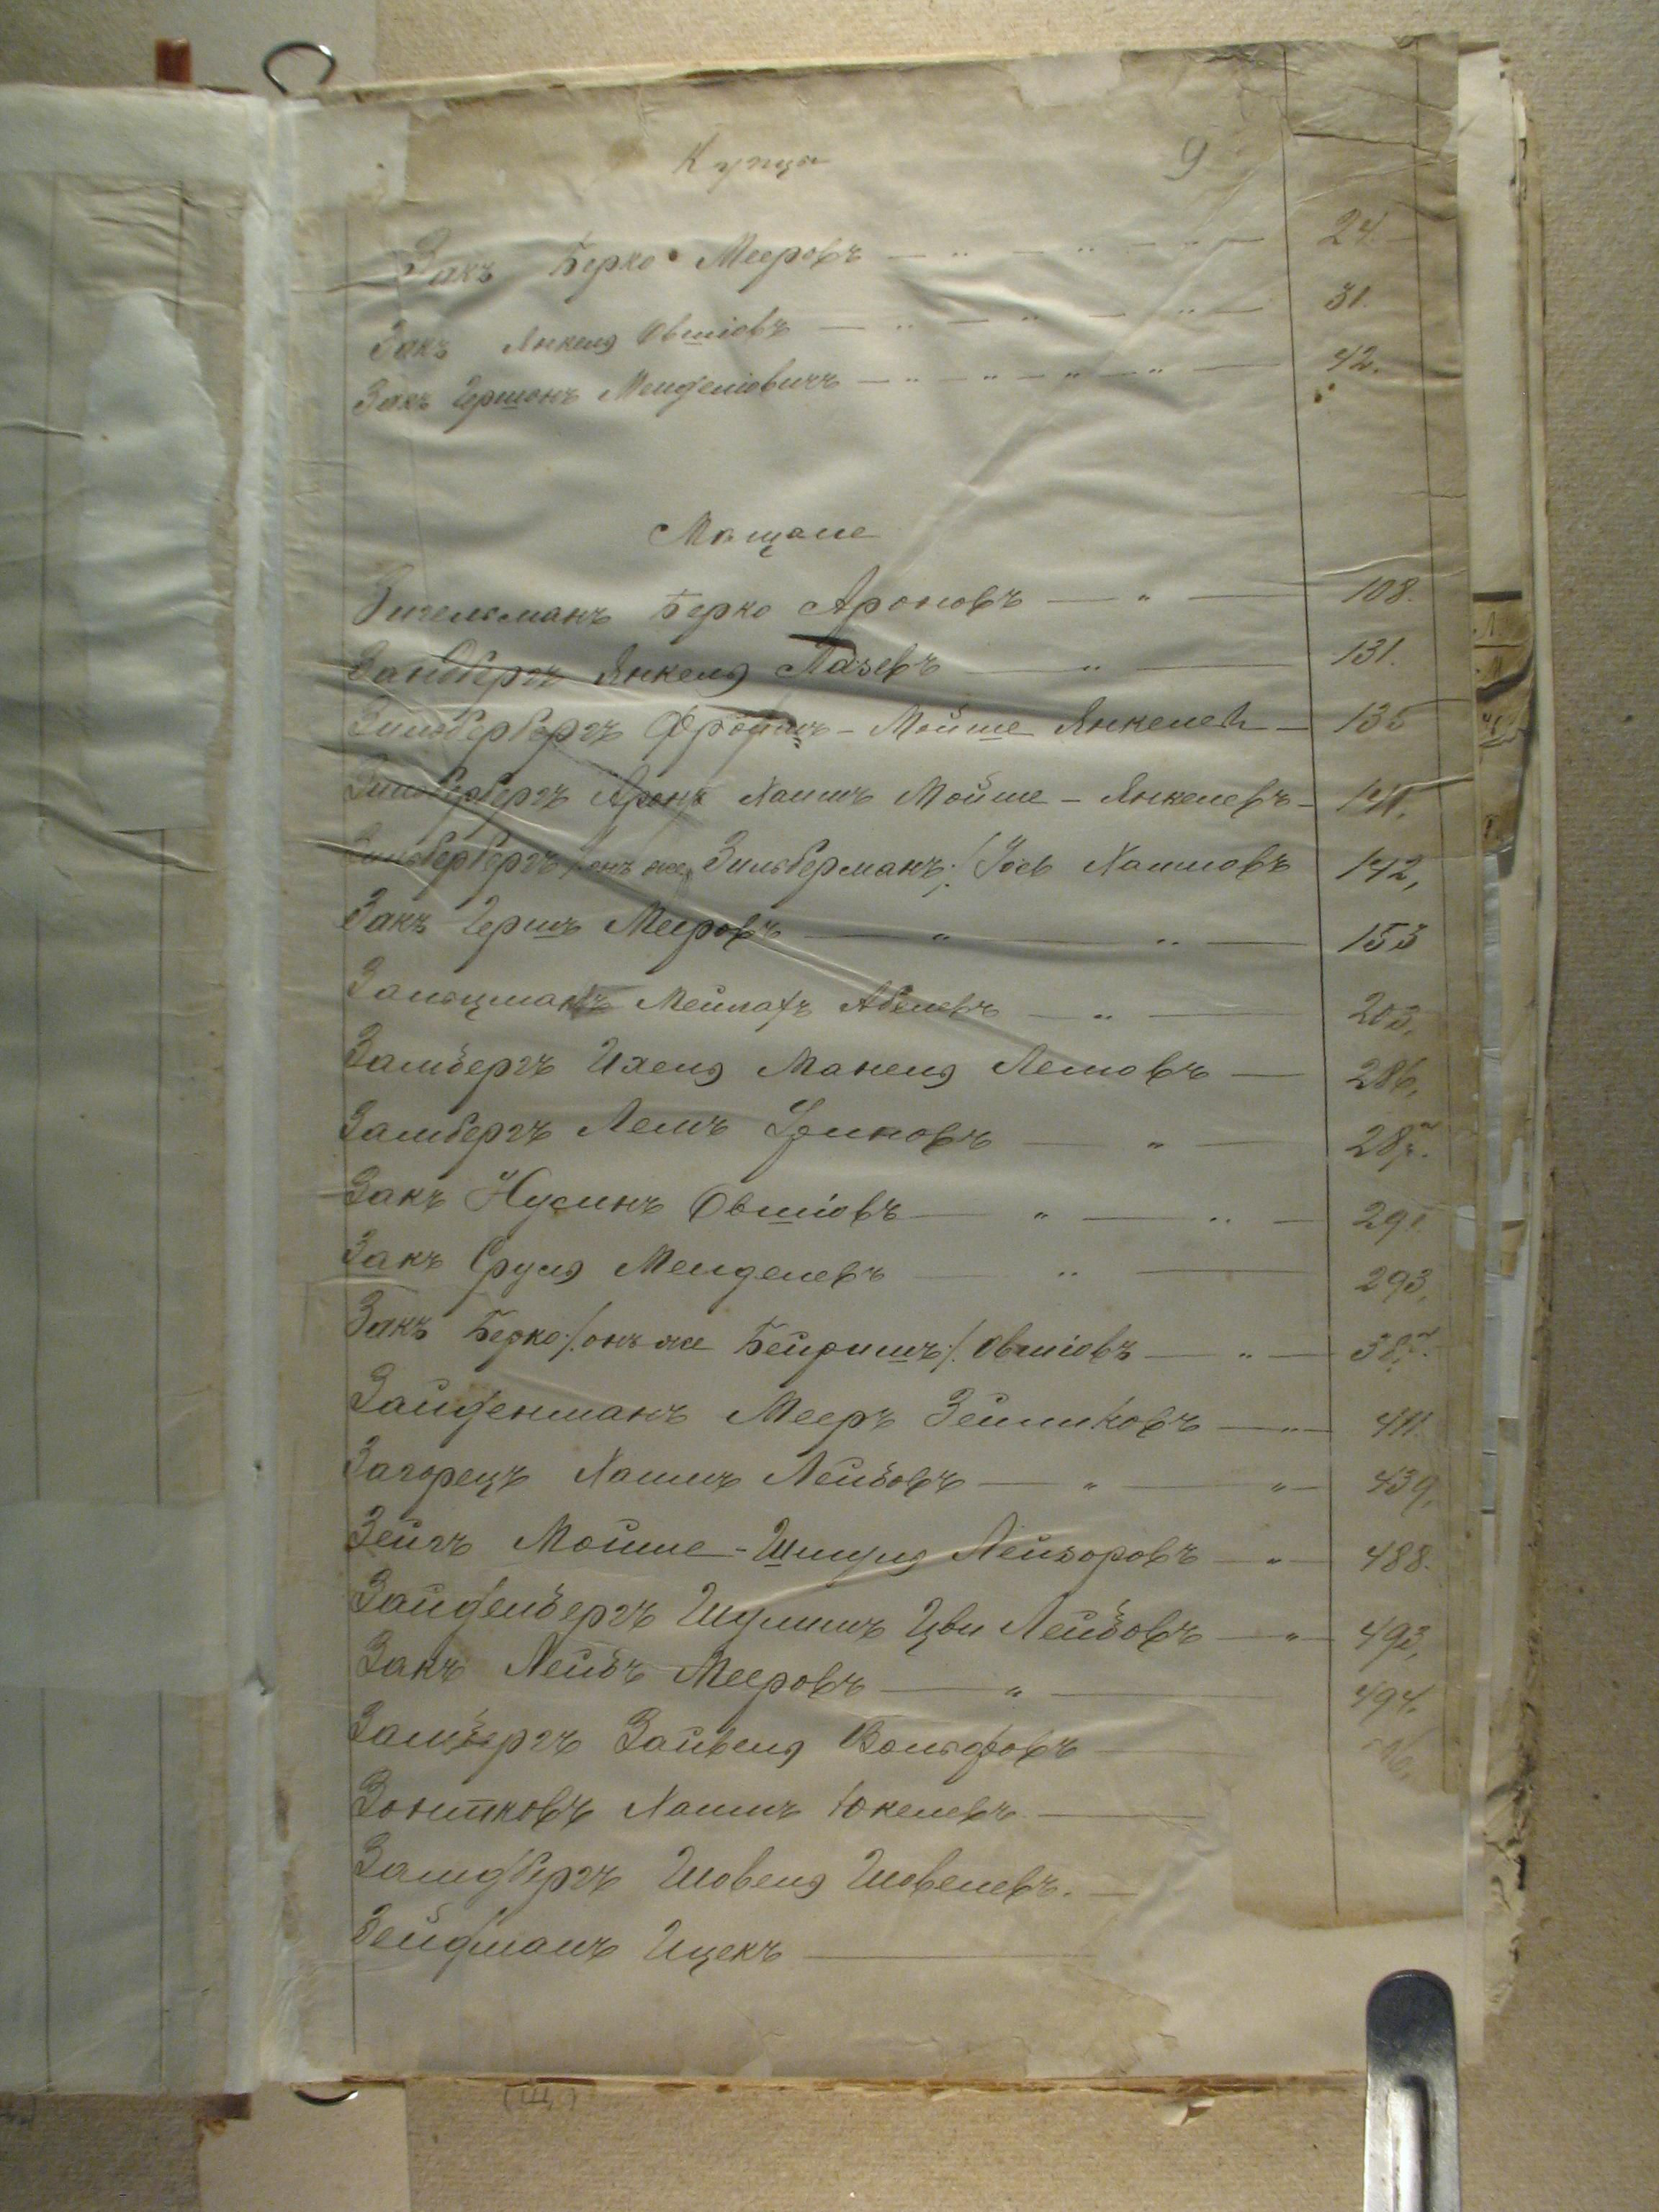 Купцы 9
Закъ Берко Мееровъ 24.
Закъ Янкель Овшіовъ 31.
Закъ Гершонъ Менделіовичъ 42.
Мѣщане
Зигельманъ Берко Ароновъ 108.
Зандбергъ Янкель Лазевъ 131.
Зильбербергъ Фроимъ-Мойше Янкелевъ 135
Зильбербергъ Аронъ Хаимъ Мойше-Янкелевъ 141.
Зильбербергъ /: онъ же Зильберманъ :/ Іось Хаимовъ 142,
Закъ Гершъ Мееровъ 153
Зальцманъ Мейлахъ Абелевъ
Замбергъ Ихель Манель Лемовъ 286,
Замбергъ Лемъ Сриновъ 287.
Закъ Нусинъ Овшіовъ 291
Закъ Сруль Менделевъ 293,
Закъ Берко /: онъ же Бейришъ :/ Овшіовъ 387.
Зайденманъ Мееръ Зеликовъ 411.
Загорецъ Хаимъ Лейбовъ 439,
Зейгъ Мойше-Шмуль Лейзоровъ 488.
Зайденбергъ Шулимъ Цви Лейбовъ 493,
Закъ Лейбъ Мееровъ 494.
Замбергъ Зайвель Вольфовъ
Зонтковъ Хаимъ Юкелевъ
Зандбергъ Шовель Шовелевъ.
Зейдманъ Ицекъ
(Щ)